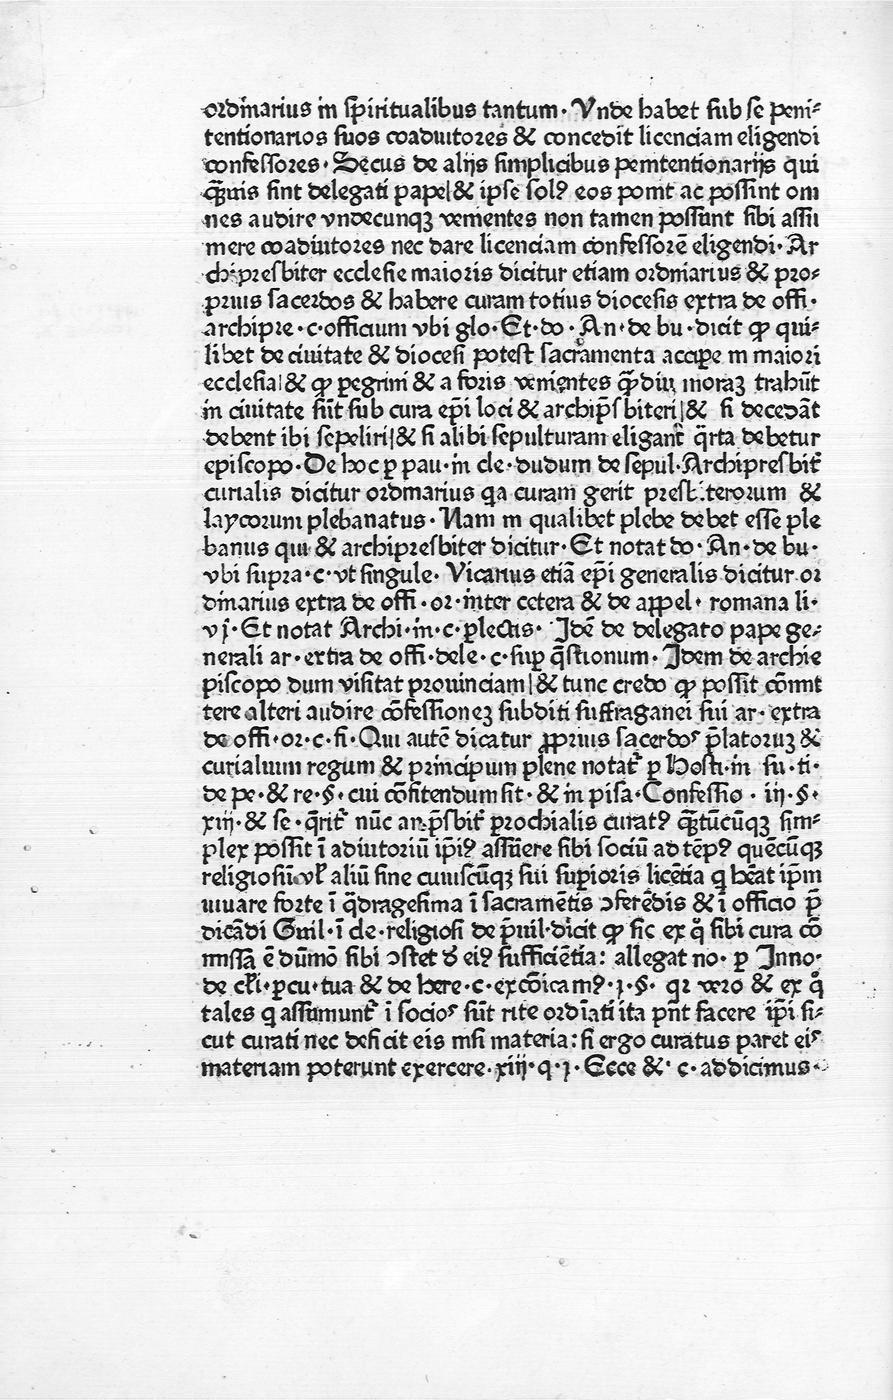 ordinarius in spiritualibus tantum· Vnde habet sub se peni⸗
tentionarios suos coadiutores & concedit licenciam eligendi
confessores· Secus de alijs simplicibus penitentionarijs qui
q̄uis sint delegati pape|& ipse solꝰ eos ponit ac possint om
nes audire vndecunqꝫ venientes non tamen possunt sibi assu
mere coadiutores nec dare licenciam confessorē eligendi· Ar
chipresbiter ecclesie maioris dicitur etiam ordinarius & pro⸗
prius sacerdos & habere curam totius diocesis extra de offi·
archipre·c·officium vbi glo·Et·do·An·de bu·dicit ꝙ qui⸗
libet de ciuitate & diocesi potest sacramenta accipe in maiori
ecclesia|& ꝙ ꝑegrini & a foris venientes q̄diu moraꝫ trahūt
in ciuitate sūt sub cura ep̄i loci & archip̄sbiteri|& si decedāt
debent ibi sepeliri|& si alibi sepulturam eligant̄ q̄rta debetur
episcopo·De hoc ꝑ pau·in cle·dudum de sepul·Archipresbit̄
curialis dicitur ordinarius qa curam gerit presbiterorum &
laycorum plebanatus·Nam in qualibet plebe debet esse ple
banus qui & archipresbiter dicitur·Et notat do·An·de bu·
vbi supra·c·vt singule· Vicarius etiā ep̄i generalis dicitur or
dinarius extra de offi·or·inter cetera & de appel· romana li·
vj·Et notat Archi·in·c·p̄lectis· Idē de delegato pape ge⸗
nerali ar·extra de offi·dele·c·suꝑ q̄stionum·Idem de archie
piscopo dum visitat prouinciam|& tunc credo ꝙ possit cōmit
tere alteri audire cōfessioneꝫ subditi suffraganei sui ar·extra
de offi·or·c·fi·Qui autē dicatur ꝓprius sacerdos p̄latoruꝫ &
curialium regum & principum plene notat̄ ꝑ Hosti·in su·ti·
de pe·& re·§·cui cōfitendum sit·& in pisa·Confessio·iij·§·
xiij·& se·q̄rit̄ nūc an p̄sbit̄ ꝑrochialis curatꝰ q̄tūcūqꝫ sim⸗
plex possit ī adiutoriū ip̄iꝰ assūere sibi sociū ad tēpꝰ quēcūqꝫ
religiosū vl̄ aliū sine cuiuscūqꝫ sui suꝑioris licētia q hēat ip̄m
iuuare forte ī q̄dragesima ī sacramētis ꝯferēdis & ī officio p̄
dicādi Guil·ī cle·religiosi de p̄uil·dicit ꝙ sic ex q̊ sibi cura cō
missa ē dūmō sibi ꝯstet de eiꝰ sufficiētia: allegat no·ꝑ Inno·
de cl̄i·ꝑcu·tua & de here·c·excōicamꝰ·j·§· qr vero & ex q̊
tales q assumunt̄ ī socios sūt rite ordīati ita pn̄t facere ip̄i si⸗
cut curati nec deficit eis nisi materia: si ergo curatus paret eis
materiam poterunt exercere·xiij·q·j·Ecce &· c·addicimus·